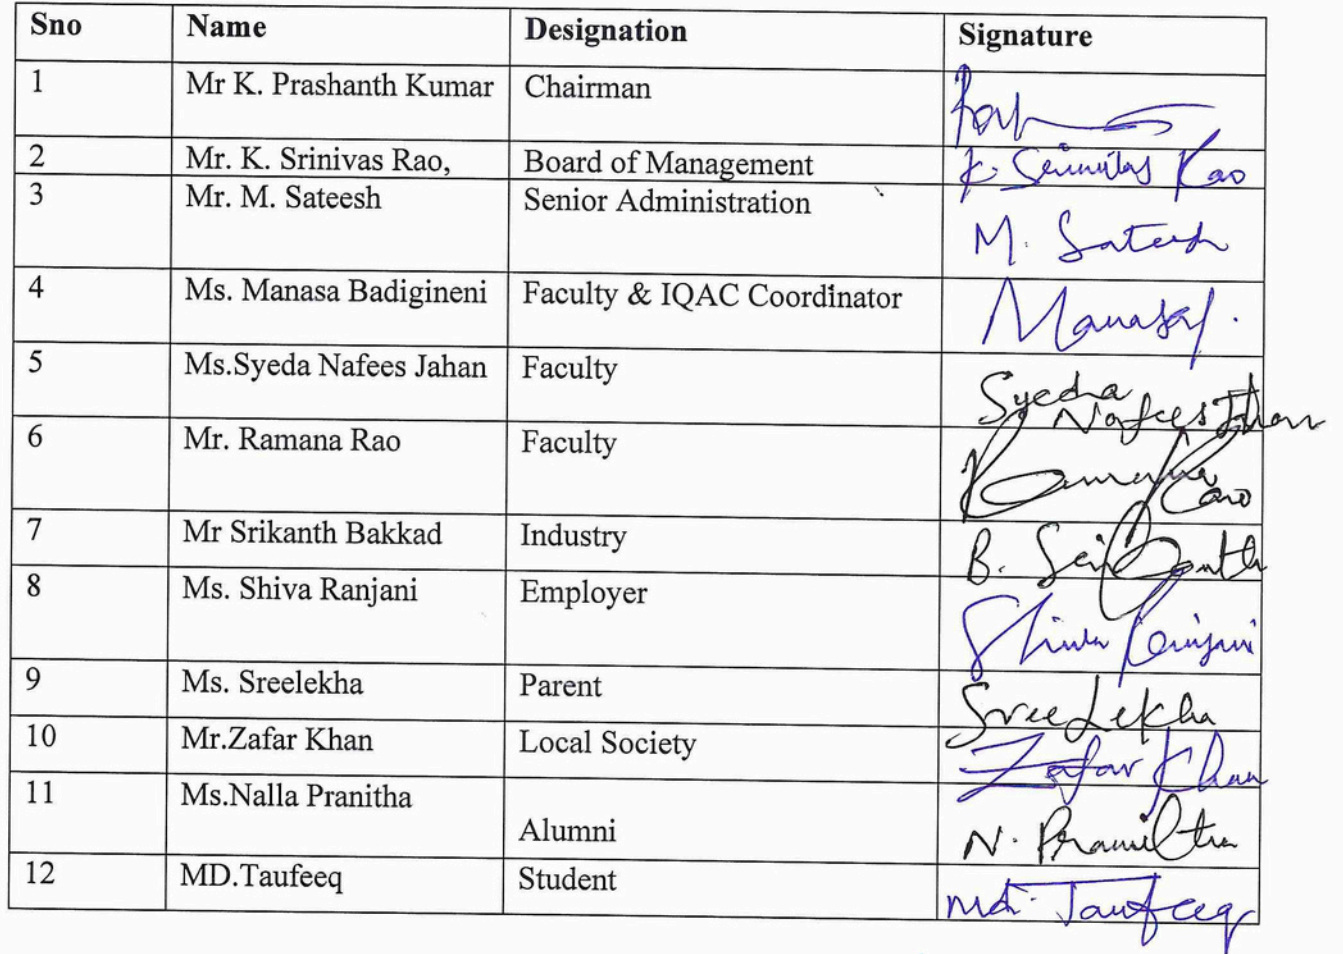 Sno Name Designation Signature
1 Mr K. Prashanth Kumar Chairman
2 Mr. K. Srinivas Rao, Board of Management K. Srinivas Rao
3 Mr. M. Sateesh Senior Administration M. Sateesh
4 Ms. Manasa Badigineni Faculty & IQAC Coordinator Manasa
5 Ms.Syeda Nafees Jahan Faculty Syeda
Nafees Jahan
6 Mr. Ramana Rao Faculty Ramana Rao
7 Mr Srikanth Bakkad Industry B. Srikanth
8 Ms. Shiva Ranjani Employer Shiva Ranjani
9 Ms. Sreelekha Parent SreeLekha
10 Mr.Zafar Khan Local Society Zafar Khan
11 Ms.Nalla Pranitha Alumni N. Pranitha
12 MD.Taufeeq Student Md. Taufeeq